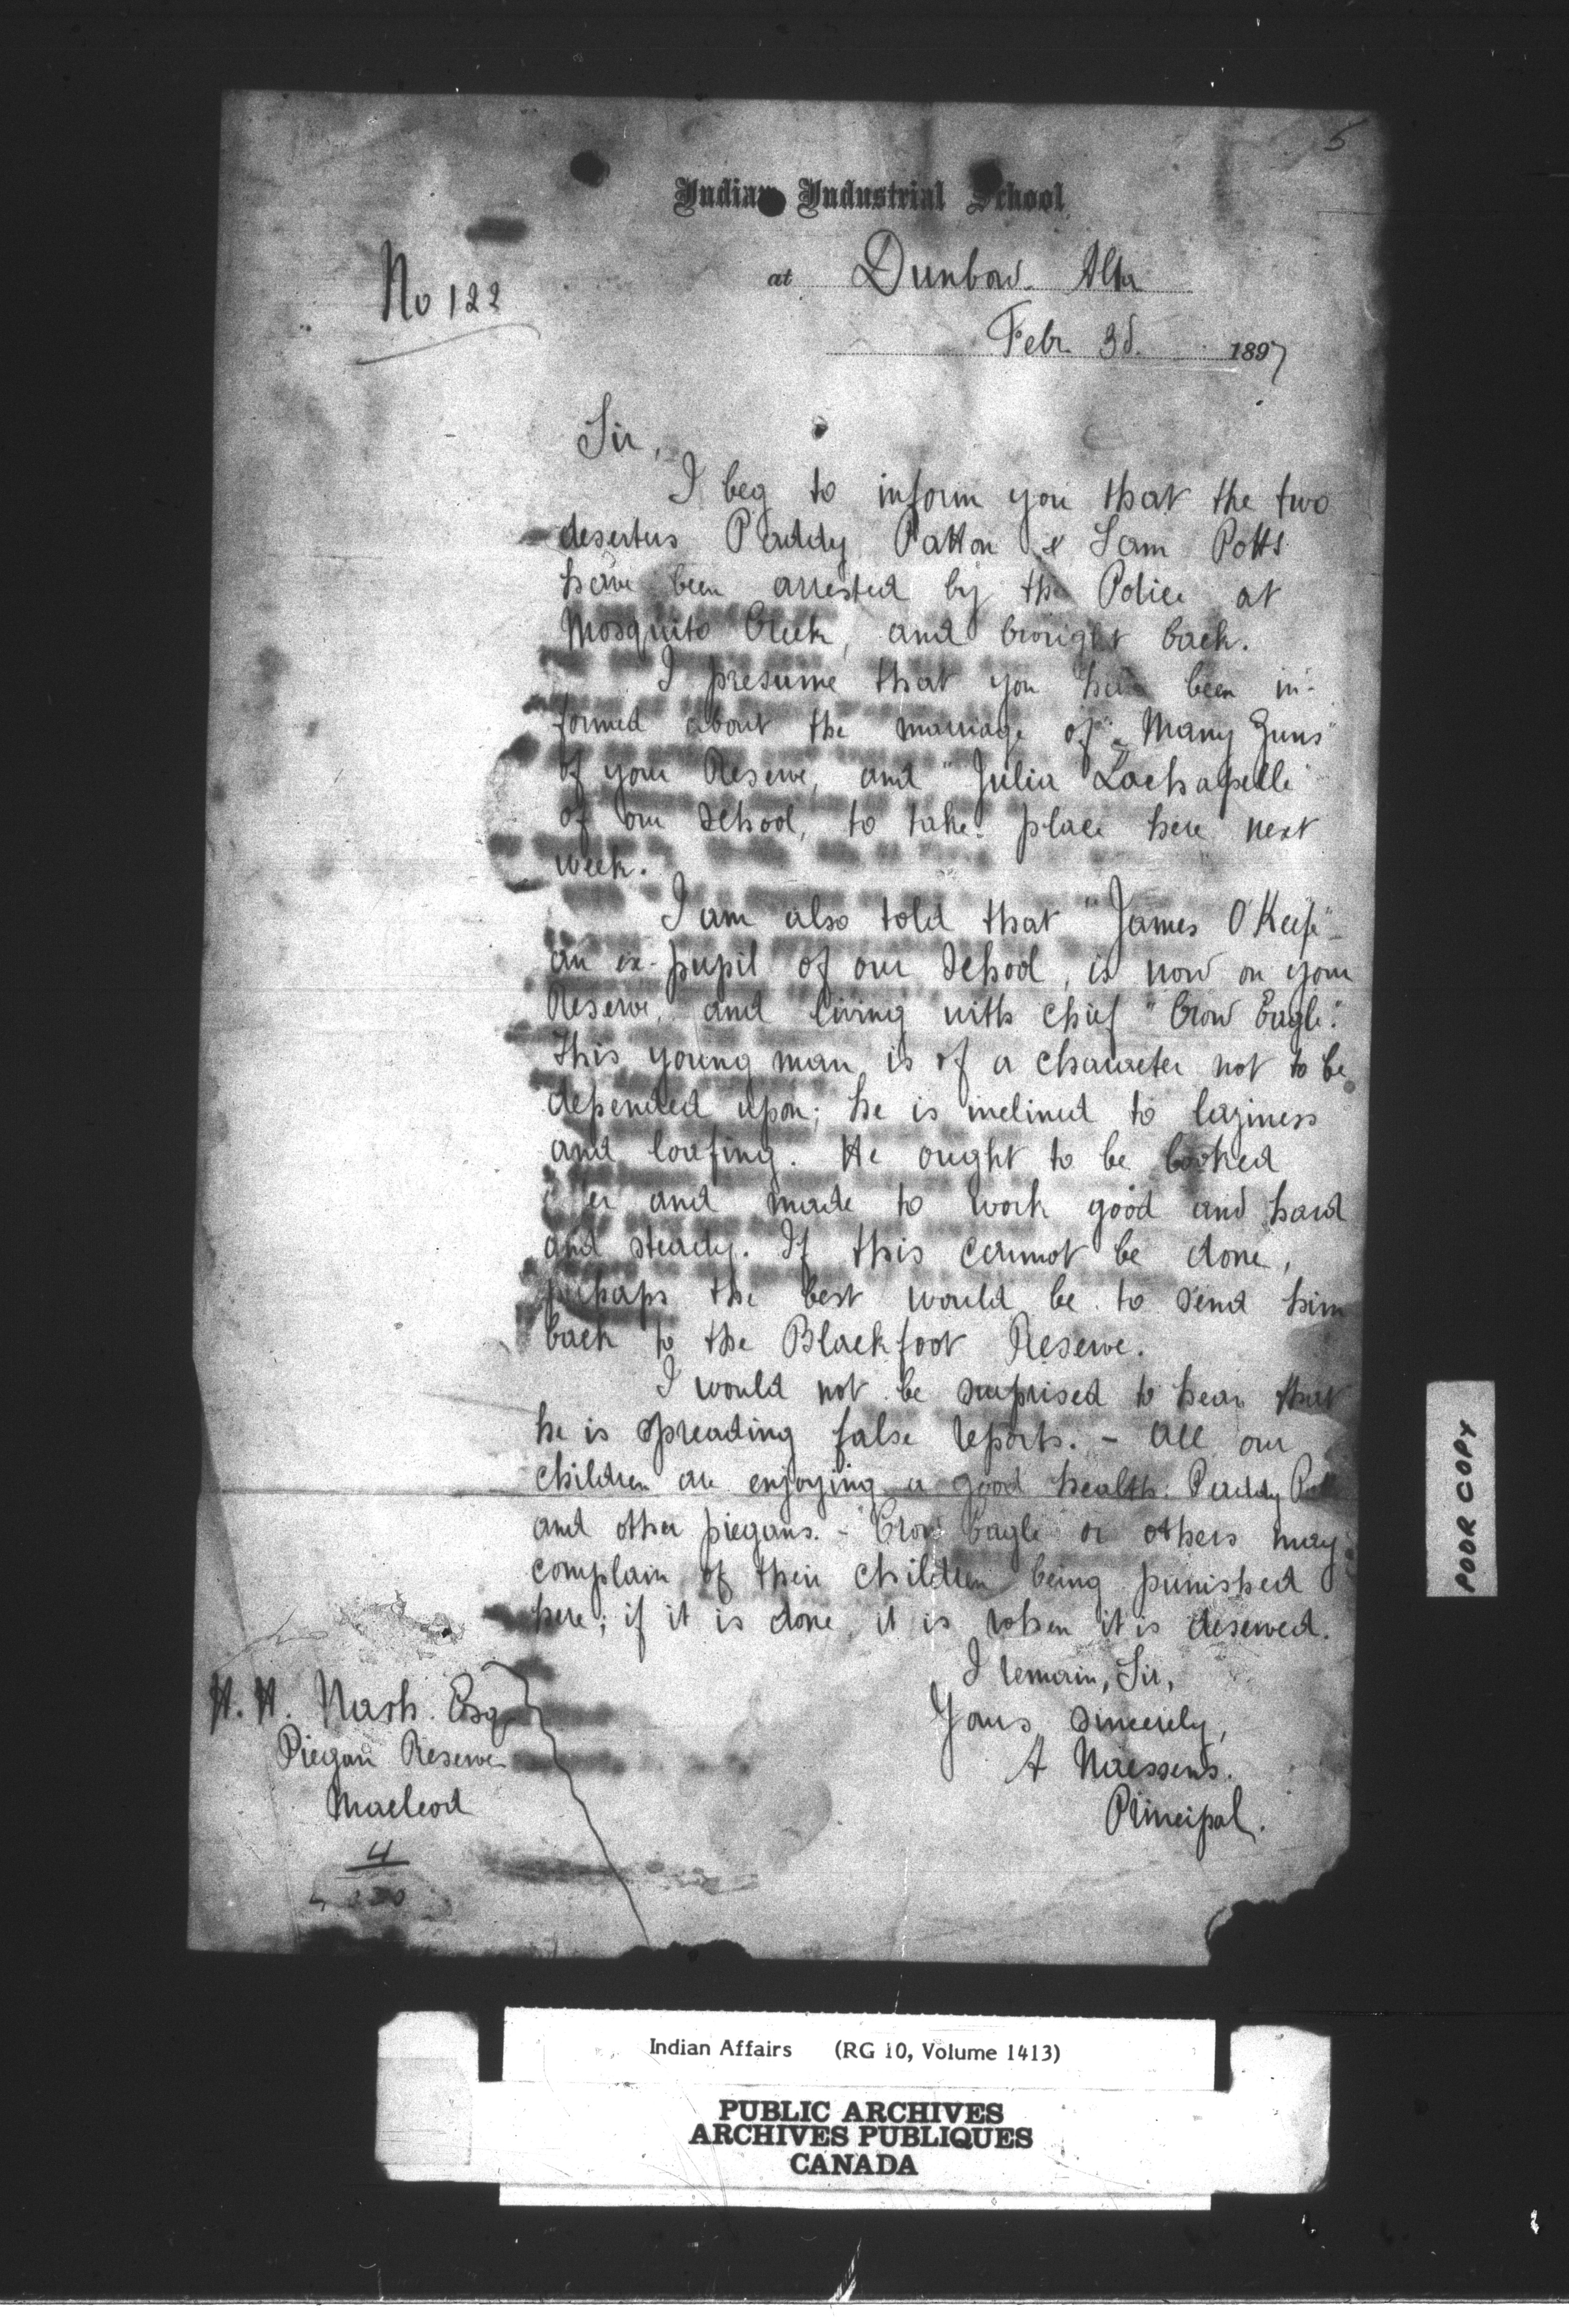 5
Indian Industrial School
No 122
at Dunbow. Alta
Febr. 3d. 1897
Sir,
I beg to inform you that the two
deserters Paddy Patton & Sam Potts
have been arrested by the Police at
Mosquito Creek, and brought back.
I presume that you have been in-
formed about the marriage of "Many Guns"
of your Reserve, and "Julia Lachapelle"
of our School, to take place here next
week.
I am also told that "James O'Keefe"
an ex-pupil of our School, is now on your
Reserve, and living with chief "Crow Eagle".
This young man is of a character not to be
depended upon; he is inclined to laziness
and loafing. He ought to be looked
and made to work good and hard
and steady. If this cannot be done,
perhaps the best would be to send him
back to the Blackfoot Reserve.
I would not be surprised to hear that
he is spreading false reports. - All our
children are enjoying a good health. Paddy
and other piegans. - "Crow Eagle" or others may
complain of their children being punished
here; if it is done, it is when it is deserved.
I remain, Sir,
Yours sincerely,
A Naessens.
Principal.
H. H. Nash. Esq
Piegan Reserve
Macleod
4
POOR COPY
Indian Affairs (RG 10, Volume 1413)
PUBLIC ARCHIVES
ARCHIVES PUBLIQUES
CANADA